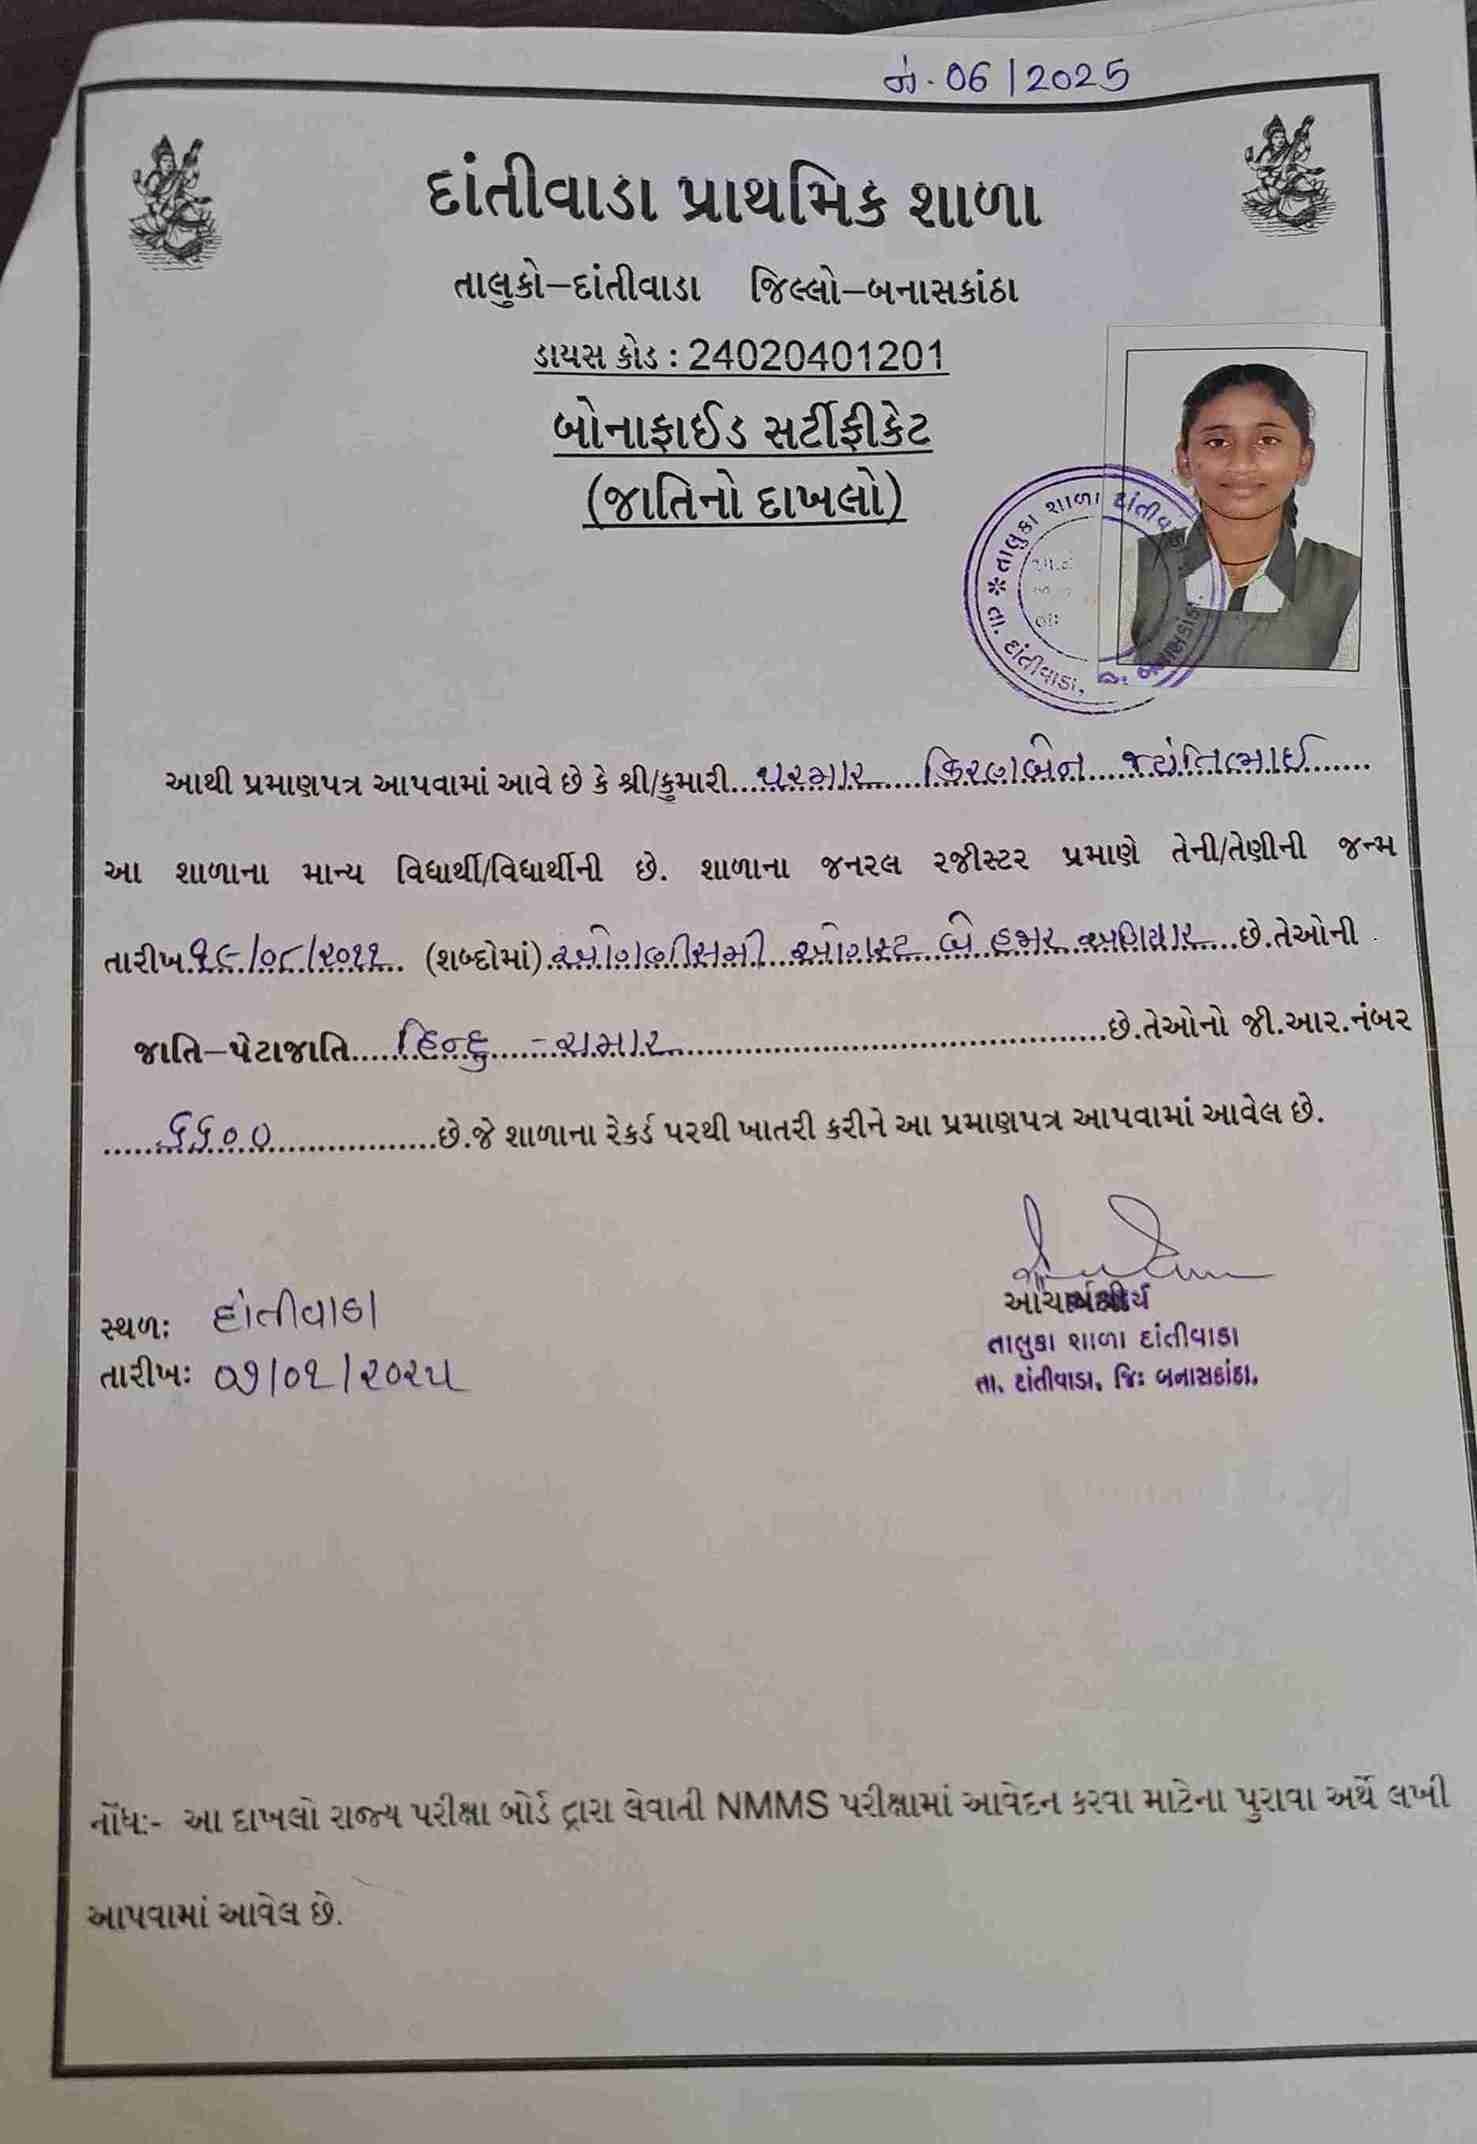 નં. 06/2025
દાંતીવાડા પ્રાથમિક શાળા
તાલુકો–દાંતીવાડા જિલ્લો–બનાસકાંઠા
ડાયસ કોડ : 24020401201
બોનાફાઈડ સર્ટીફીકેટ
(જાતિનો દાખલો)
* તાલુકા શાળા દાંતીવાડા
તા. દાંતીવાડા, જિ. બનાસકાંઠા.
આથી પ્રમાણપત્ર આપવામાં આવે છે કે શ્રી/કુમારી..પરમાર કિરણબેન જ્યંતિભાઈ.......
આ શાળાના માન્ય વિદ્યાર્થી/વિદ્યાર્થીની છે. શાળાના જનરલ રજીસ્ટર પ્રમાણે તેની/તેણીની જન્મ
તારીખ.૧૯/૦૮/૨૦૧૧.. (શબ્દોમાં).ઓગણીસમી ઓગસ્ટ બે હજાર અગિયાર....છે.તેઓની
જાતિ–પેટાજાતિ.....હિન્દુ - ચમાર..........છે.તેઓનો જી.આર.નંબર
......૬૬૦૦...............છે.જે શાળાના રેકર્ડ પરથી ખાતરી કરીને આ પ્રમાણપત્ર આપવામાં આવેલ છે.
સ્થળ: દાંતીવાડા
તારીખ: ૦૭/૦૧/૨૦૨૫
તાલુકા શાળા દાંતીવાડા
તા. દાંતીવાડા, જિ: બનાસકાંઠા.
નોંધ:- આ દાખલો રાજ્ય પરીક્ષા બોર્ડ દ્વારા લેવાતી NMMS પરીક્ષામાં આવેદન કરવા માટેના પુરાવા અર્થે લખી
આપવામાં આવેલ છે.